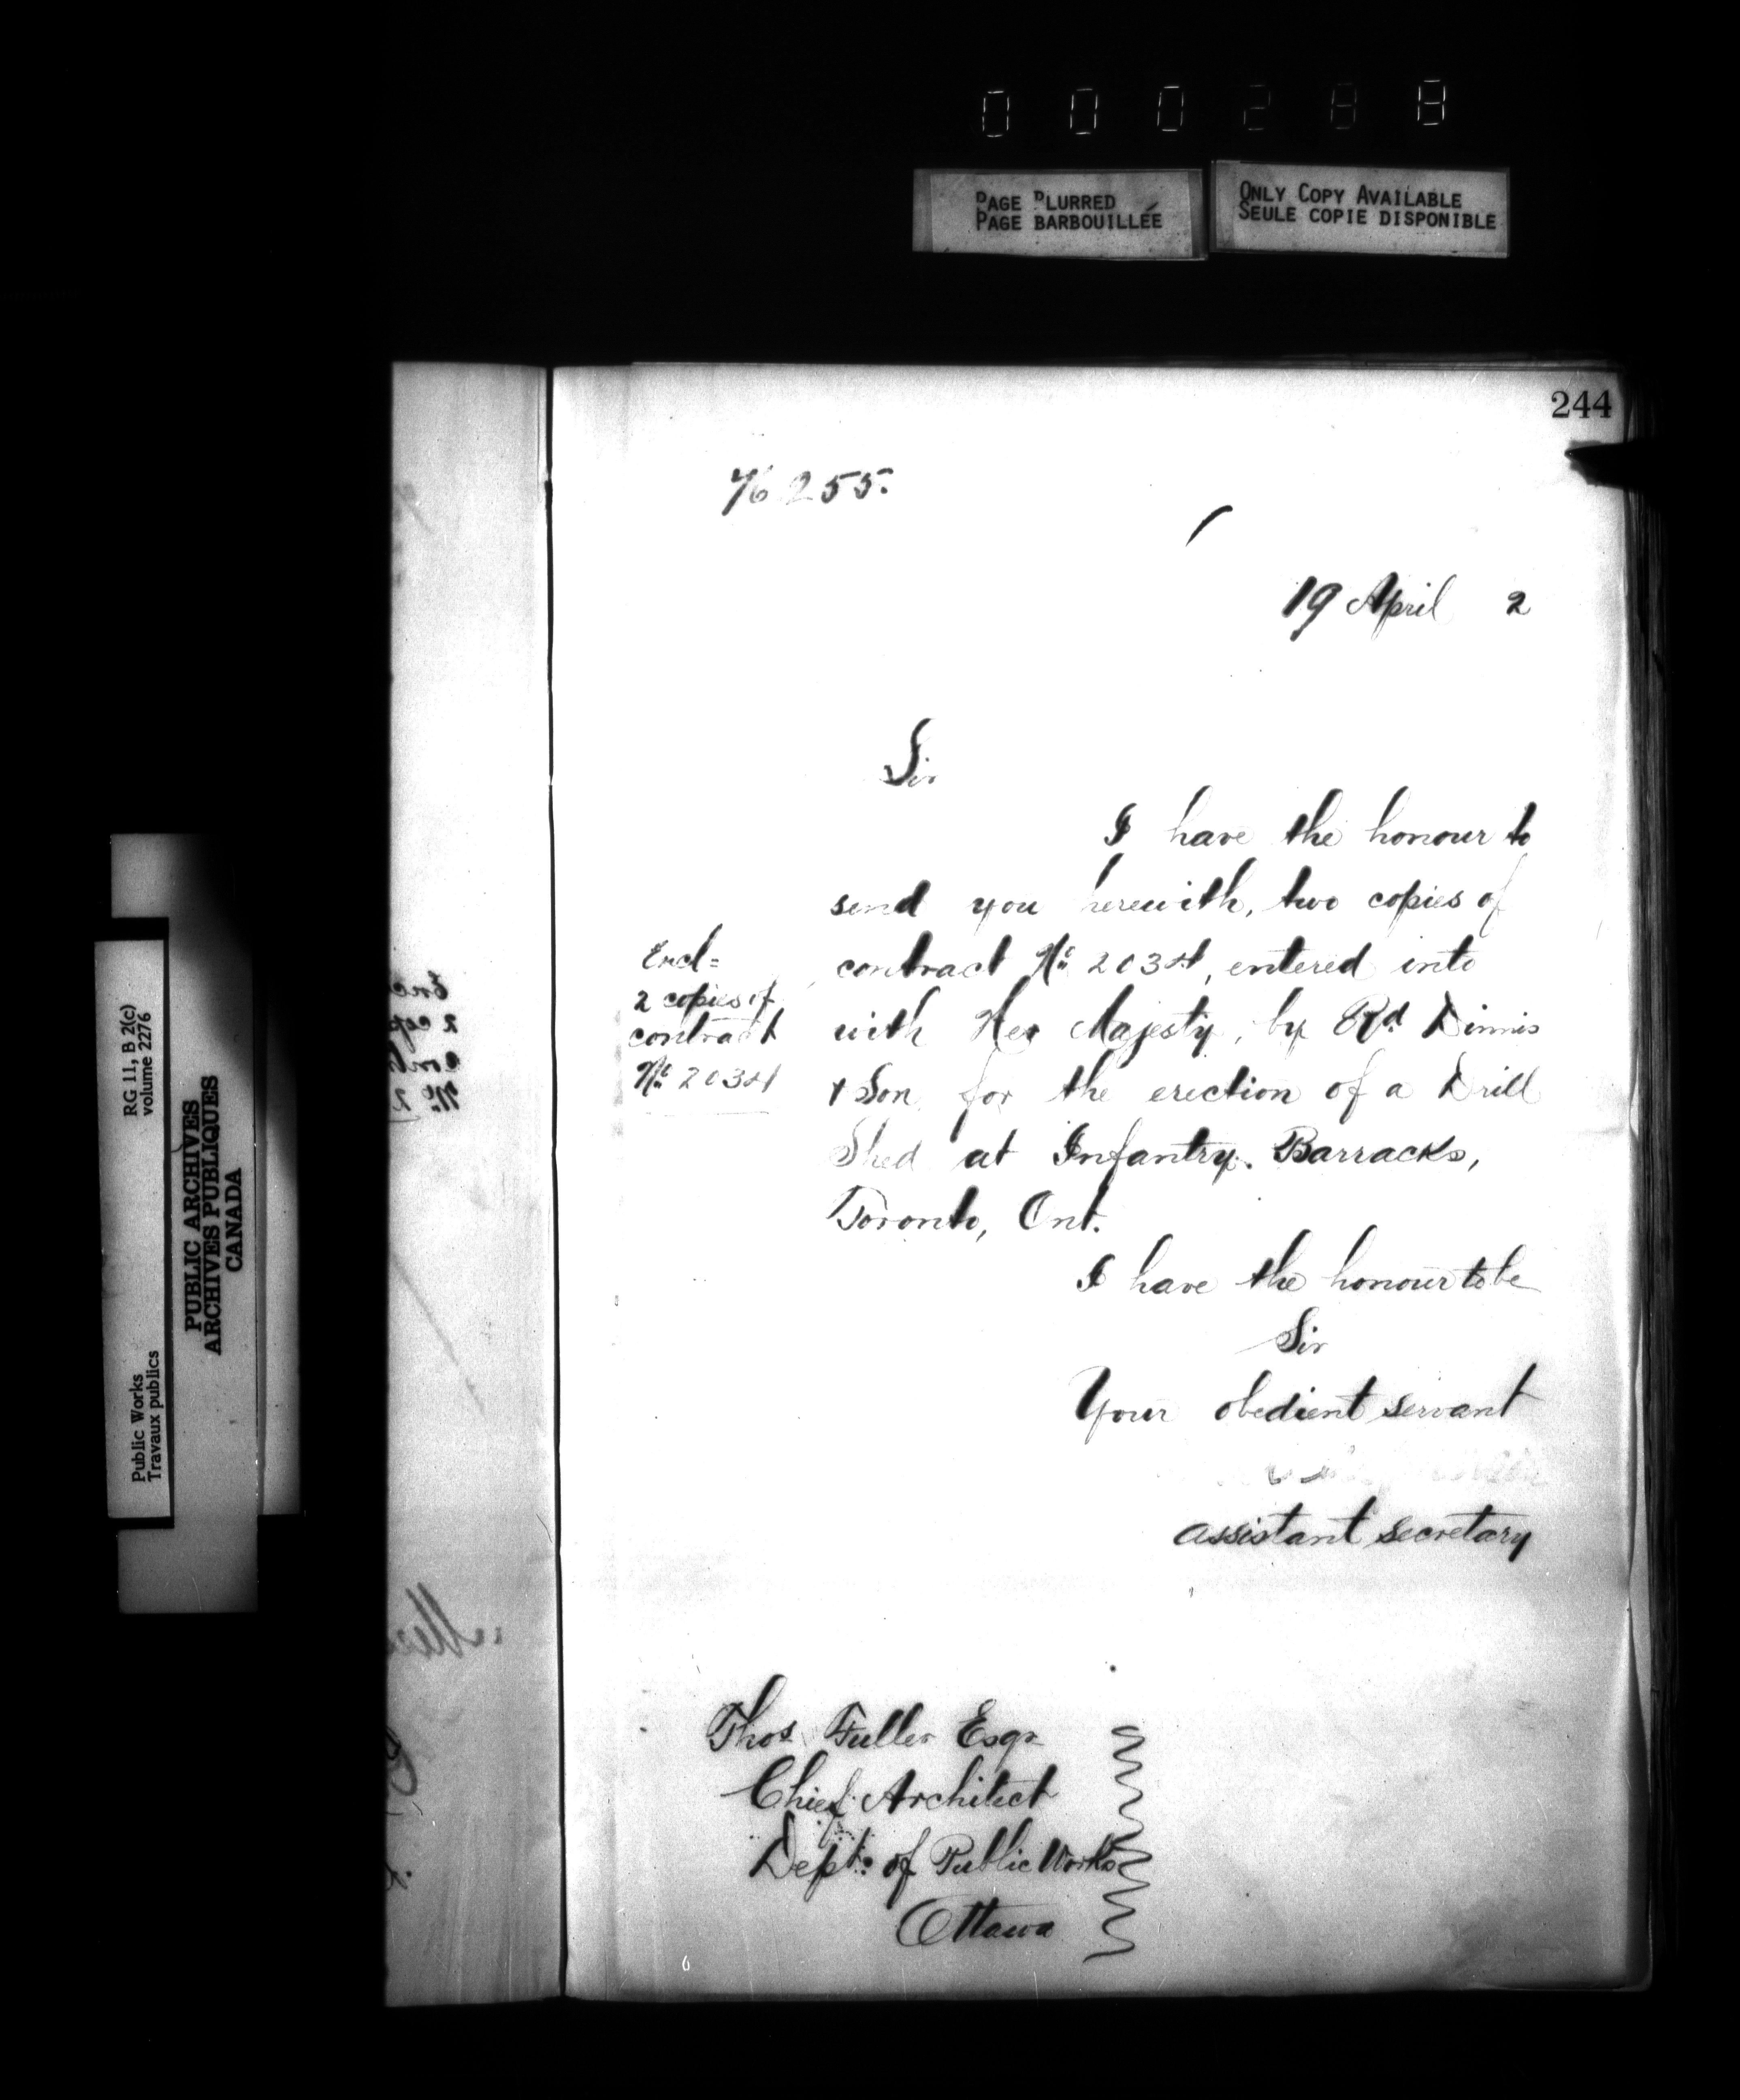 000288
PAGE BLURRED
PAGE BARBOUILLÉE
ONLY COPY AVAILABLE
SEULE COPIE DISPONIBLE
244
76255.
19 April 2
Sir
I have the honour to
send you herewith, two copies of
contract No. 2034, entered into
with Her Majesty, by Rd. Dinnis
& Son for the erection of a Drill
Shed at Infantry Barracks,
Toronto, Ont.
Encl=
2 copies of
contract
No. 2034
I have the honour to be
Sir
Your obedient servant
assistant secretary
Thos Fuller Esqr
Chief Architect
Dept. of Public Works
Ottawa
RG 11, B 2(c)
volume 2276
Public Works
Travaux publics
PUBLIC ARCHIVES
ARCHIVES PUBLIQUES
CANADA